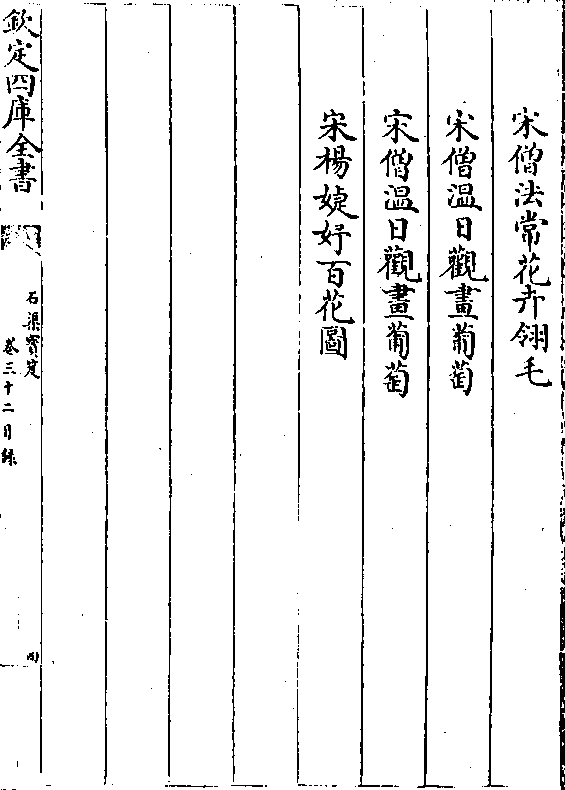 宋僧法常花卉翎毛
宋僧温日觀畫葡萄
宋僧温日觀畫葡萄
宋楊婕妤百花圖
欽定四庫全書
石渠寶笈
卷三十二目錄
四